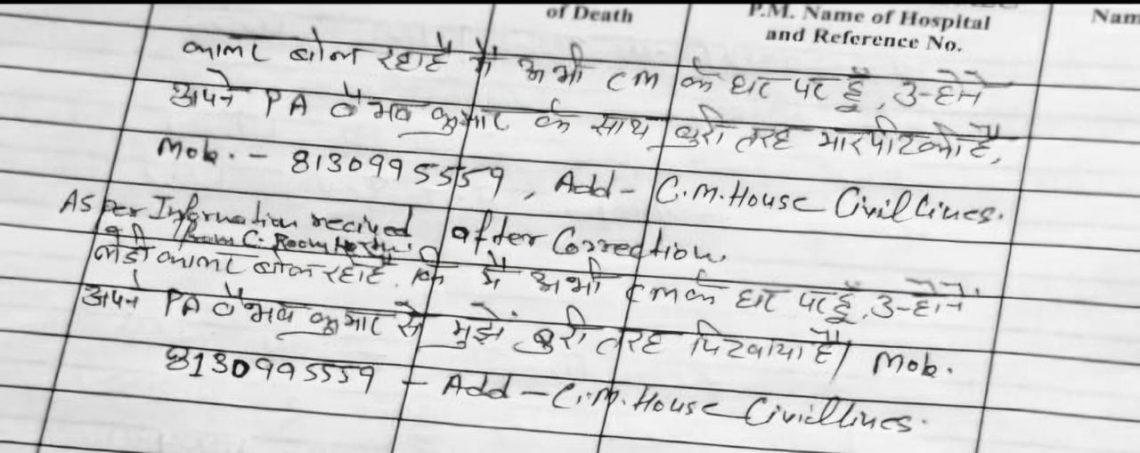 of Death P.M. Name of Hospital and Reference No. Nam
कालर बोल रहा है मैं अभी CM के घर पर हूँ, उन्होंने
अपने PA वैभव कुमार के साथ बुरी तरह मारपीट की है,
Mob. - 8130995559, Add - C.M. House Civil Lines.
As per Information recived after Correction.
from C. Room
लेडी कालर बोल रहा है कि मैं अभी CM के घर पर हूँ, उन्होंने
अपने PA वैभव कुमार से मुझे बुरी तरह पिटवाया है। Mob.
8130995559 - Add - C.M. House Civil lines.